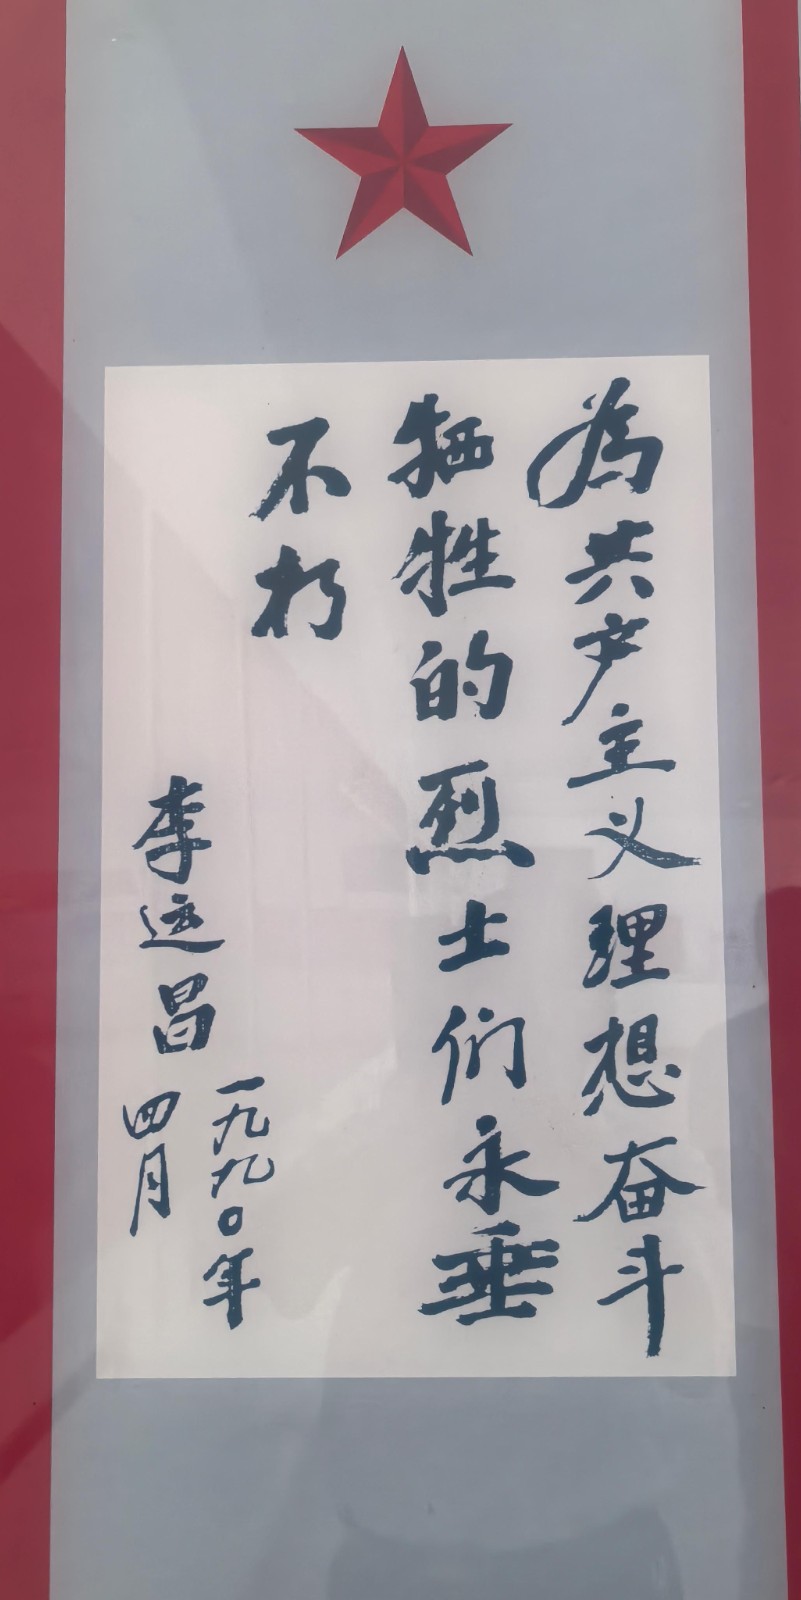 為共产主义理想奋斗
牺牲的烈士们永垂
不朽
李运昌
一九九〇年
四月